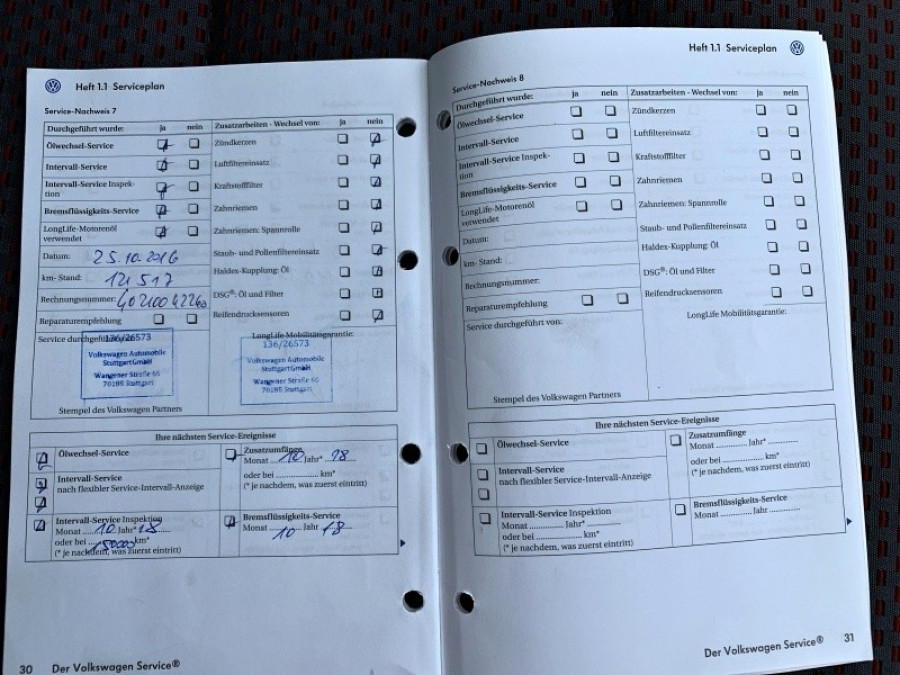 Heft 1.1 Serviceplan
Service-Nachweis 7
Durchgeführt wurde: ja nein
Zusatzarbeiten - Wechsel von: ja nein
Ölwechsel-Service
Zündkerzen
Intervall-Service
Luftfiltereinsatz
Intervall-Service Inspek-
tion
Kraftstofffilter
Bremsflüssigkeits-Service
Zahnriemen
LongLife-Motorenöl
verwendet
Zahnriemen: Spannrolle
Datum: 25.10.2016
Staub- und Pollenfiltereinsatz
km- Stand: 121517
Haldex-Kupplung: Öl
Rechnungsnummer:
DSG®: Öl und Filter
Reparaturempfehlung
Reifendrucksensoren
Service durchgeführt
LongLife Mobilitätsgarantie:
136/26573
Volkswagen Automobile
Stuttgart GmbH
Wangener Straße 66
70188 Stuttgart
136/26573
Volkswagen Automobile
Stuttgart GmbH
Wangener Straße 66
70188 Stuttgart
Stempel des Volkswagen Partners
Ihre nächsten Service-Ereignisse
Ölwechsel-Service
Zusatzumfänge
Monat 10 Jahr* 18
Intervall-Service
nach flexibler Service-Intervall-Anzeige
oder bei .............. km*
(* je nachdem, was zuerst eintritt)
Intervall-Service Inspektion
Monat 10 Jahr* 18
oder bei 150000 km*
(* je nachdem, was zuerst eintritt)
Bremsflüssigkeits-Service
Monat 10 Jahr 18
30 Der Volkswagen Service®
Heft 1.1 Serviceplan
Service-Nachweis 8
Durchgeführt wurde: ja nein
Zusatzarbeiten - Wechsel von: ja nein
Ölwechsel-Service
Zündkerzen
Intervall-Service
Luftfiltereinsatz
Intervall-Service Inspek-
tion
Kraftstofffilter
Bremsflüssigkeits-Service
Zahnriemen
LongLife-Motorenöl
verwendet
Zahnriemen: Spannrolle
Datum:
Staub- und Pollenfiltereinsatz
km- Stand:
Haldex-Kupplung: Öl
Rechnungsnummer:
DSG®: Öl und Filter
Reparaturempfehlung
Reifendrucksensoren
Service durchgeführt von:
LongLife Mobilitätsgarantie:
Stempel des Volkswagen Partners
Ihre nächsten Service-Ereignisse
Ölwechsel-Service
Zusatzumfänge
Monat .............. Jahr* ..............
Intervall-Service
nach flexibler Service-Intervall-Anzeige
oder bei .............. km*
(* je nachdem, was zuerst eintritt)
Intervall-Service Inspektion
Monat .............. Jahr* ..............
oder bei .............. km*
(* je nachdem, was zuerst eintritt)
Bremsflüssigkeits-Service
Monat .............. Jahr ..............
Der Volkswagen Service® 31